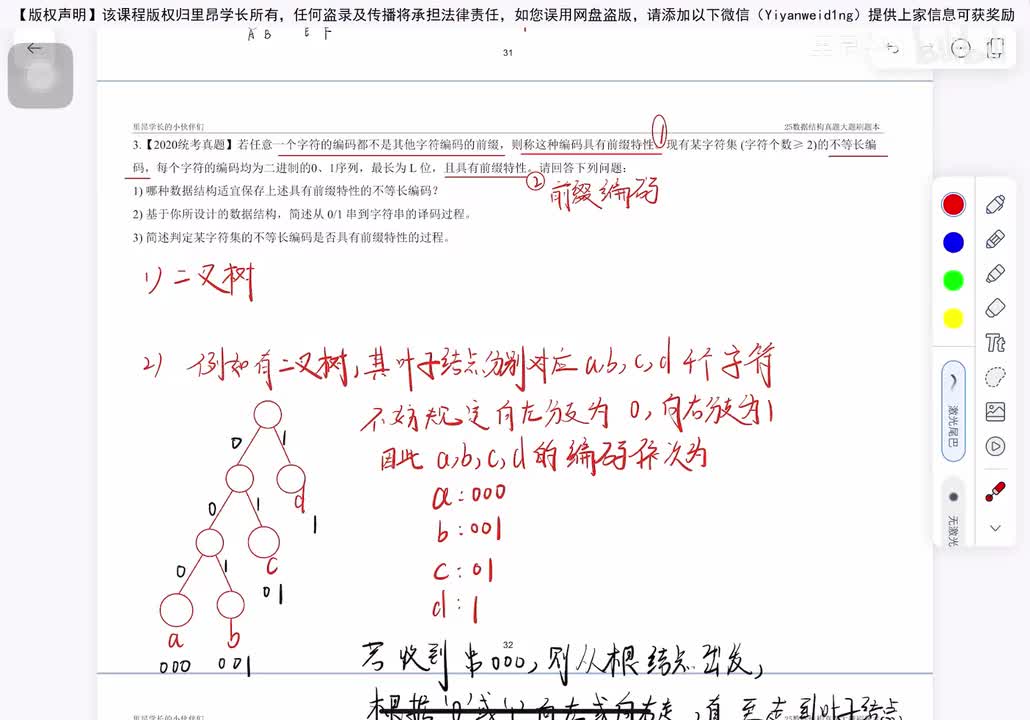 【版权声明】该课程版权归里昂学长所有，任何盗录及传播将承担法律责任，如您误用网盘盗版，请添加以下微信（Yiyanweid1ng）提供上家信息可获奖励
A B E F
31
里昂学长的小伙伴们 25数据结构真题大题刷题本
3.【2020统考真题】若任意一个字符的编码都不是其他字符编码的前缀，则称这种编码具有前缀特性。现有某字符集 (字符个数≥ 2)的不等长编
码，每个字符的编码均为二进制的0、1序列，最长为 L 位，且具有前缀特性。请回答下列问题：
① ② 前缀编码
1) 哪种数据结构适宜保存上述具有前缀特性的不等长编码？
2) 基于你所设计的数据结构，简述从 0/1 串到字符串的译码过程。
3) 简述判定某字符集的不等长编码是否具有前缀特性的过程。
1) 二叉树
2) 例如有二叉树，其叶子结点分别对应 a,b,c,d 4个字符
不妨规定向左分支为 0，向右分支为1
因此 a,b,c,d 的编码依次为
a：000
b：001
c：01
d：1
0 1
d
0 1 1
c
0 1 01
a b
000 001
若收到串000，则从根结点出发，
32
根据'0'或'1'向左或向右走，直至走到叶子结点
里昂学长的小伙伴们 25数据结构真题大题刷题本
Tt
激光尾巴
无激光